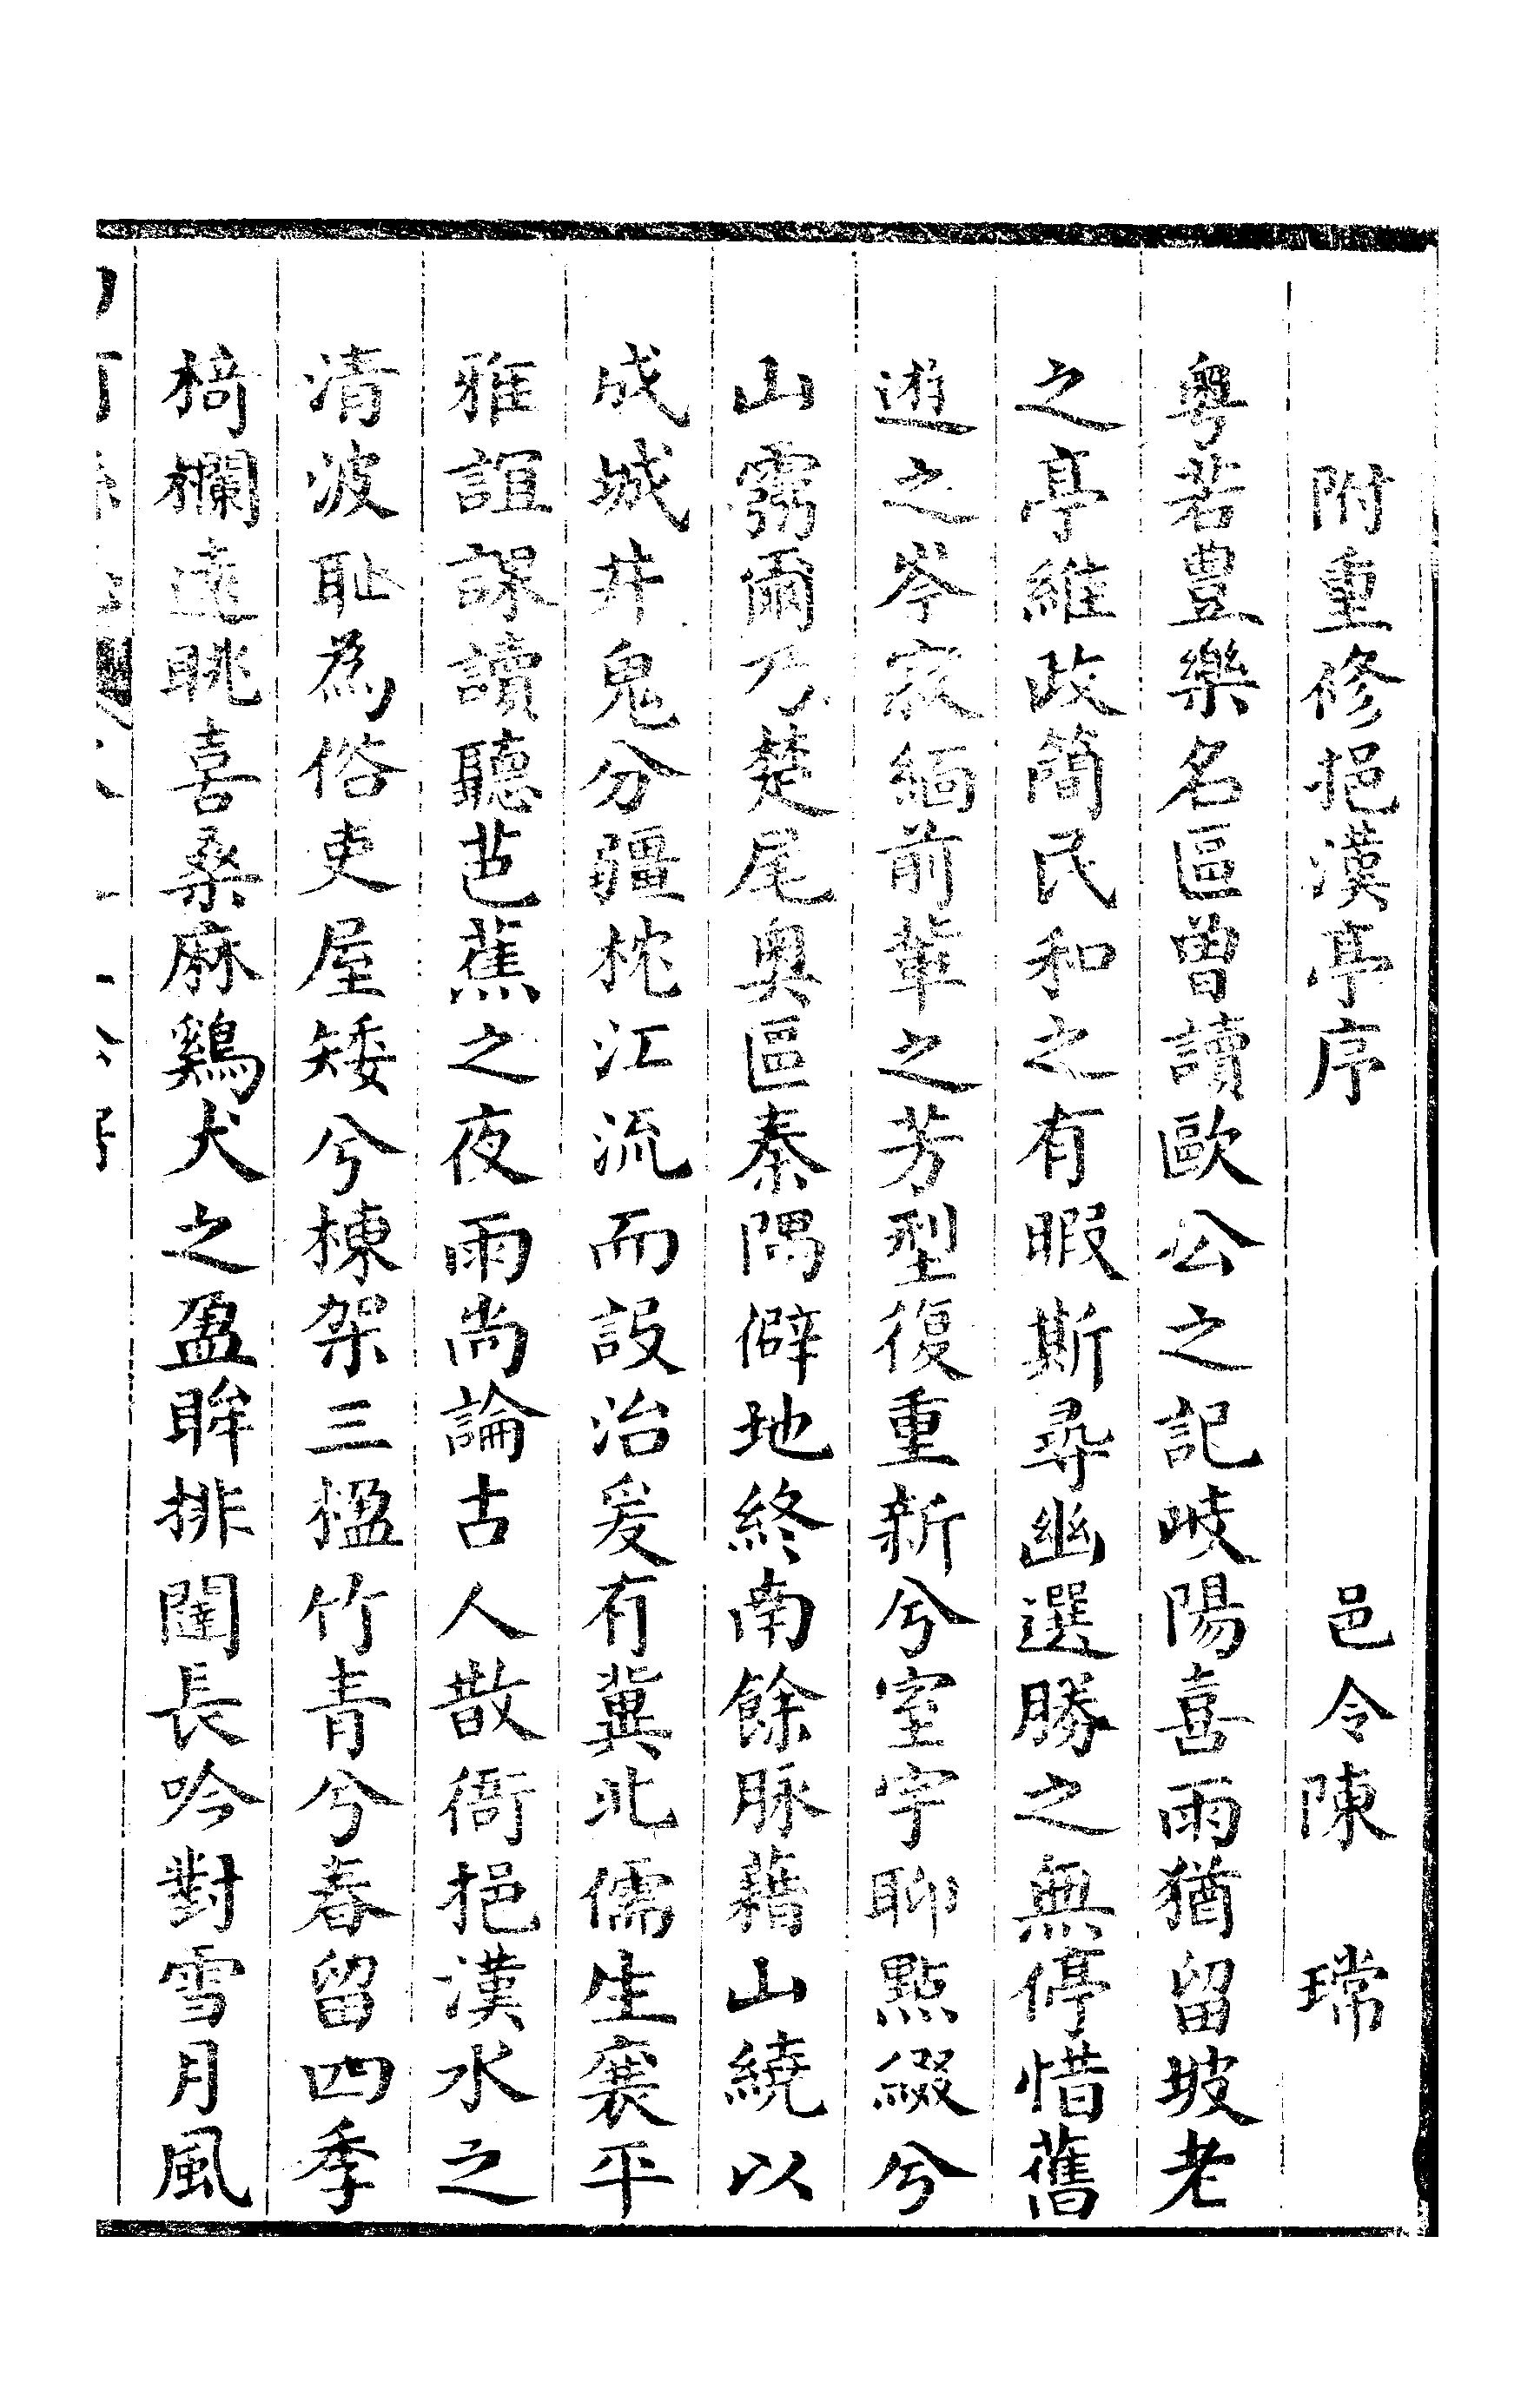 附重修挹漢亭序 邑令陳 瑺
粵若豊樂名區曾讀歐公之記岐陽喜雨猶留坡老
之亭維政簡民和之有暇斯尋幽選勝之無停惜舊
遊之岑寂緬前輩之芳型復重新兮室宇聊點綴兮
山霱爾乃楚尾奥區秦隅僻地終南餘脉藉山繞以
成城井鬼分疆枕江流而設治爰有冀北儒生襄平
雅誼課讀聽芭蕉之夜雨尚論古人散衙挹漢水之
清波耻為俗吏屋矮兮棟架三楹竹青兮春留四季
椅欄遠眺喜桑麻鷄犬之盈眸排闥長吟對雪月風